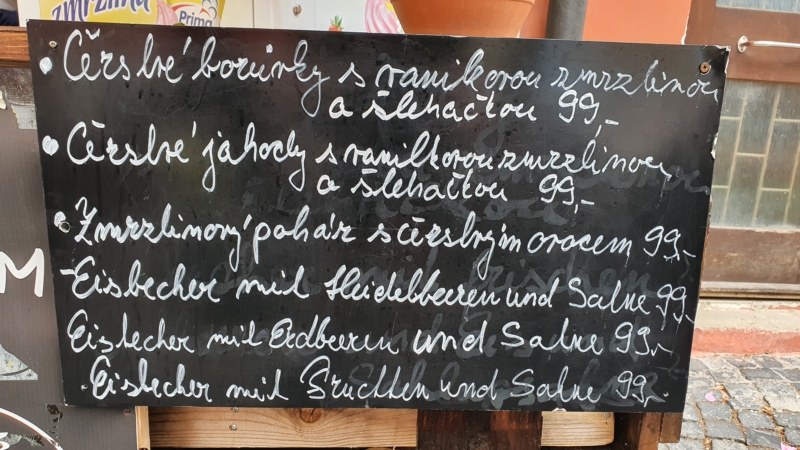 zmrzlina
Prima
Čerstvé borůvky s vanilkovou zmrzlinou
a šlehačkou 99,-
Čerstvé jahody s vanilkovou zmrzlinou
a šlehačkou 99,-
Zmrzlinový pohár s čerstvým ovocem 99,-
-Eisbecher mit Heidelbeeren und Sahne 99,-
Eisbecher mit Erdbeeren und Sahne 99,-
Eisbecher mit Früchten und Sahne 99,-
M